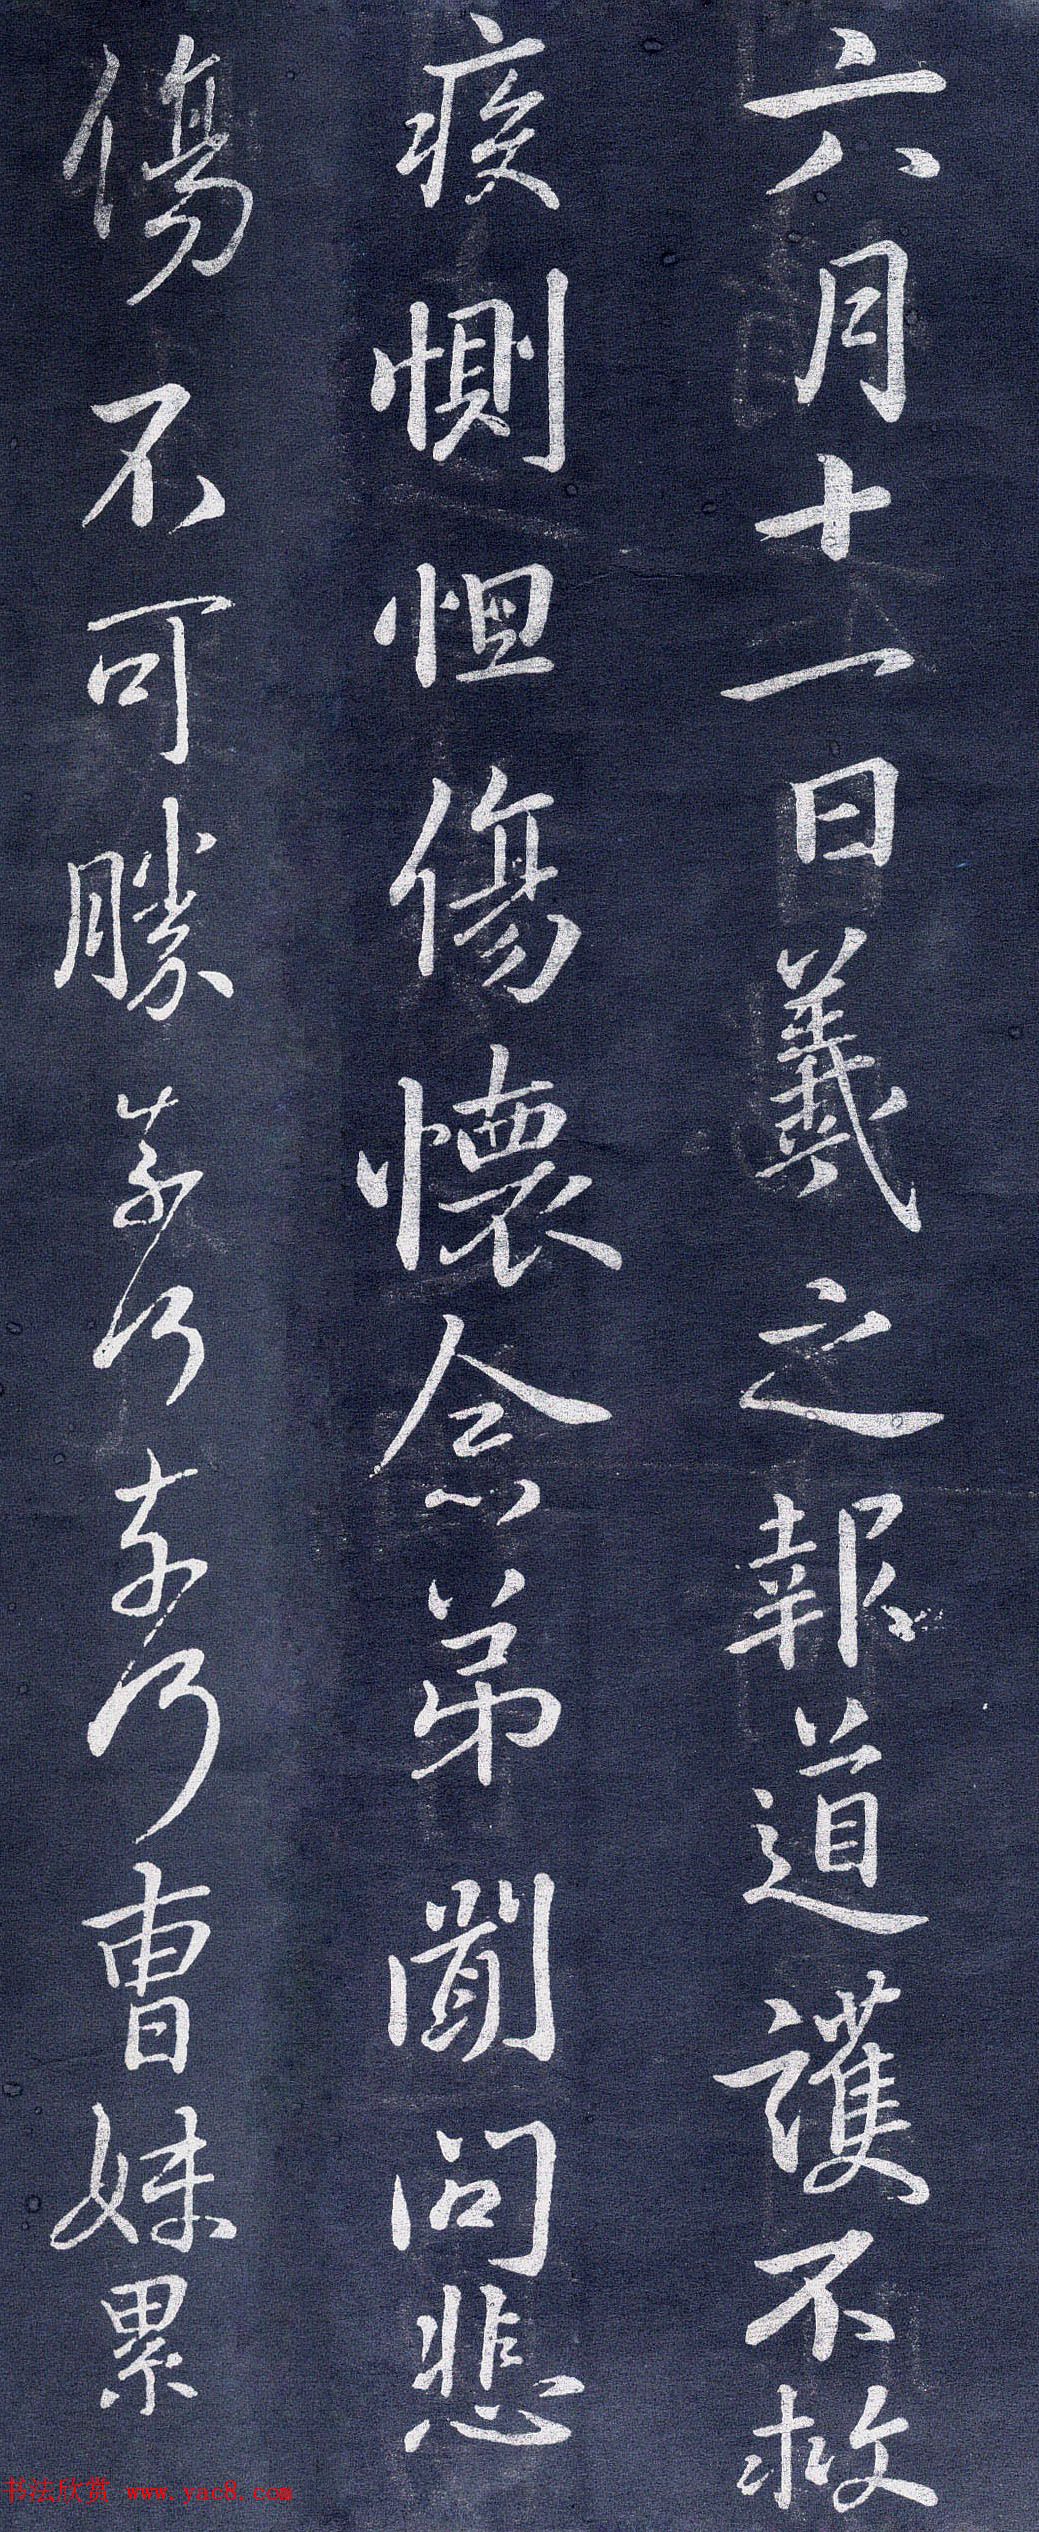 六月十一日羲之報道護不救
疾惻怛傷懷念弟聞問悲
傷不可勝奈何奈何曹妹累
书法欣赏 www.yac8.com